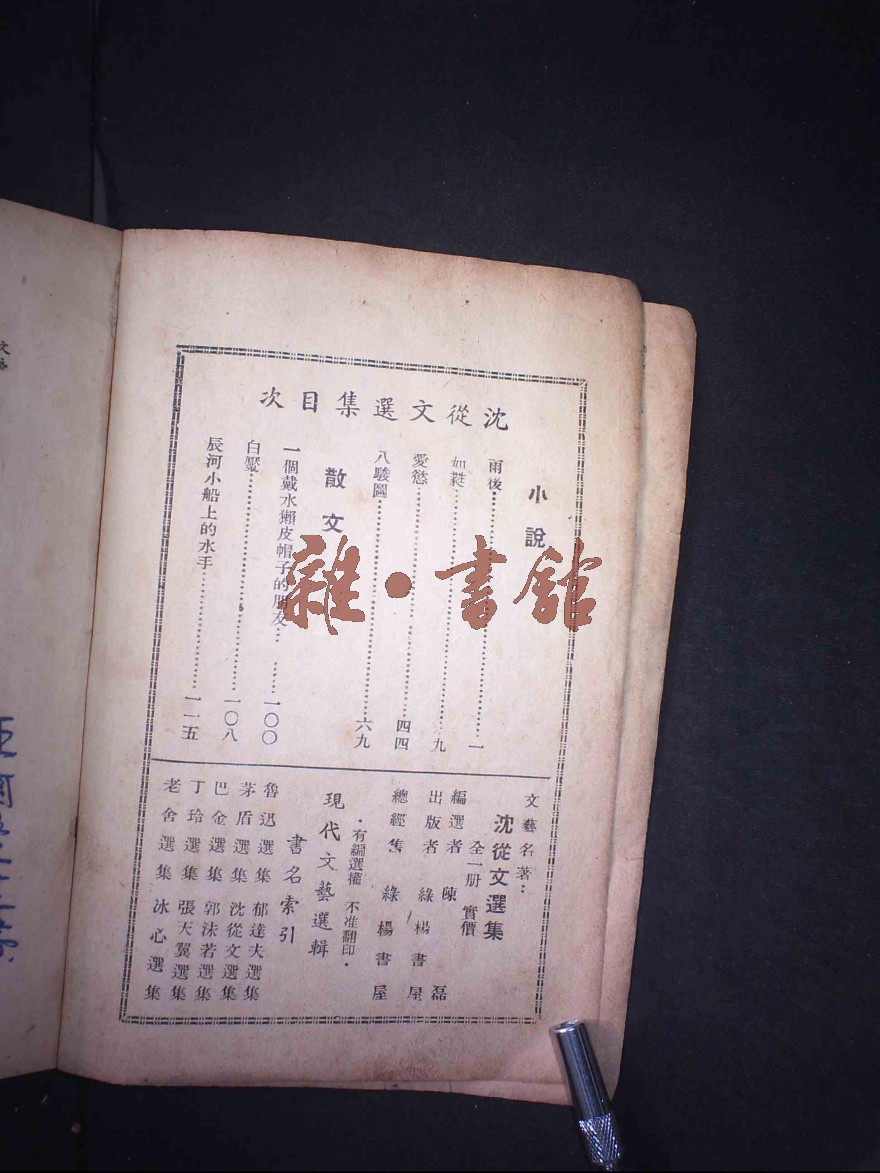 沈從文選集目次
小說
雨後……一
如蕤……九
愛慾……四四
八駿圖……六九
散文
一個戴水獺皮帽子的朋友……一〇〇
白魘……一〇八
辰河小船上的水手……一一五
文藝名著：
沈從文選集
全一册 實價
編選者 陳磊
出版者 綠楊書屋
總經售 綠楊書屋
·有編選權 不准翻印·
現代文藝選輯
書名索引
魯迅選集 郁達夫選集
茅盾選集 沈從文選集
巴金選集 郭沫若選集
丁玲選集 張天翼選集
老舍選集 冰心選集
雜·書館
文藝